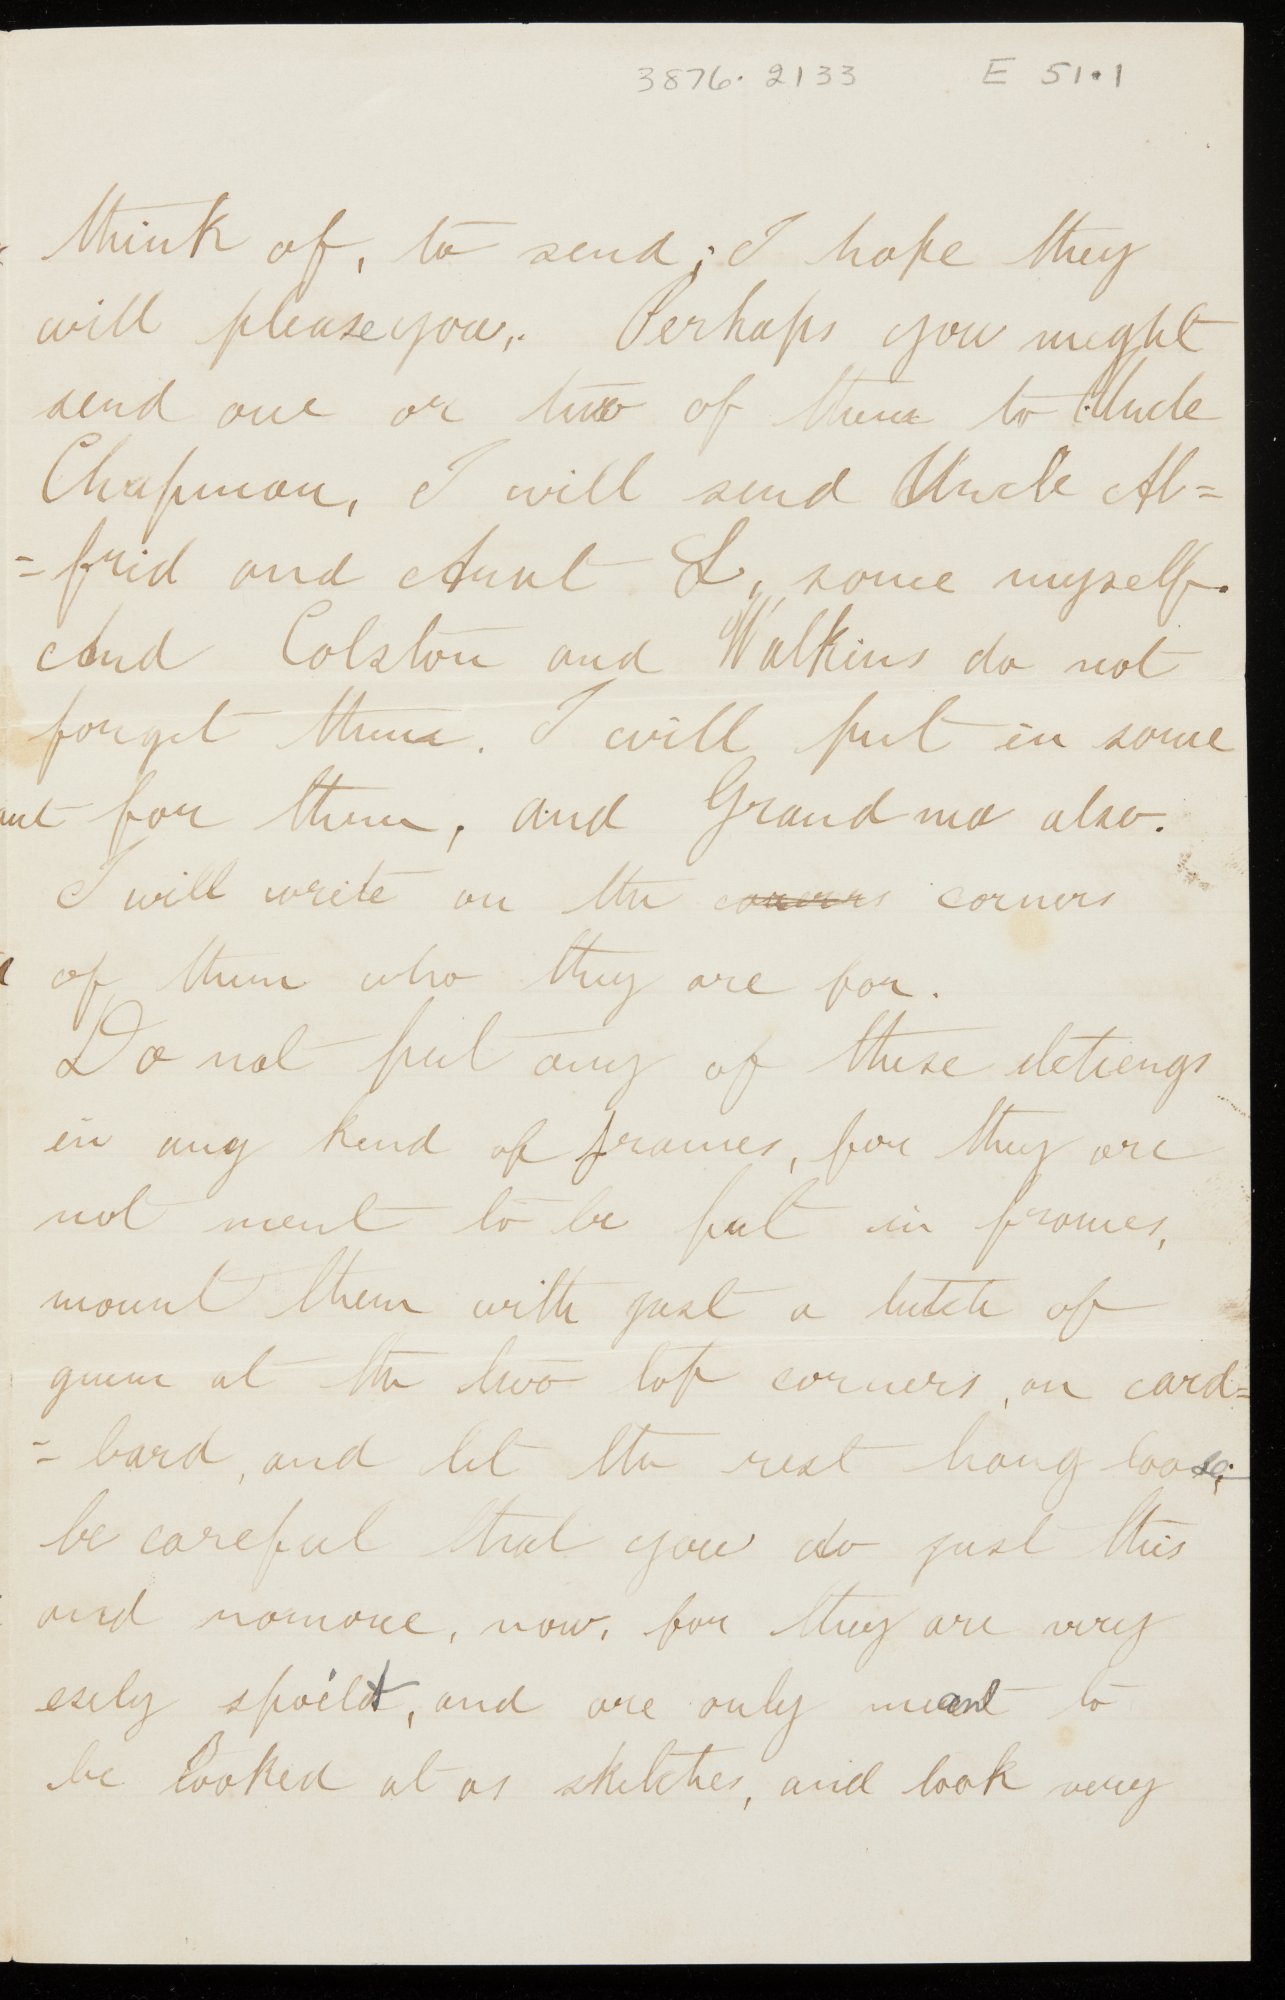 3876.2133 E 51.1
think of, to send; I hope they
will please you,. Perhaps you might
send one or two of them to Uncle
Chapman, I will send Uncle Al=
=frid and Aunt L, some myself.
And Colston and Walkins do not
forget them. I will put in some
for them, and Grandma also.
I will write on the corners corners
of them who they are for.
Do not put any of these
in any kind of frames, for they are
not ment to be put in frames,
mount them with just a tutch of
gum at the two top corners, on card=
=bard, and let the rest hang loose;
be careful that you do just this
and nomore, now, for they are very
esely spoilt, and are only meant to
be looked at as sketches, and look very